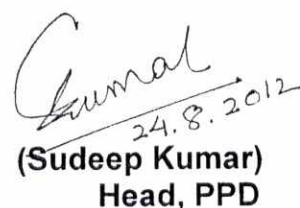 Skumar
24.8.2012
(Sudeep Kumar)
Head, PPD